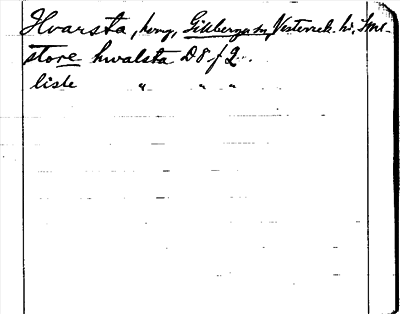 Hvarsta, hmg, Gillberga sn, Västerrek. hd, Sml.
store hwalsta D8 f 2.
lisle " " "